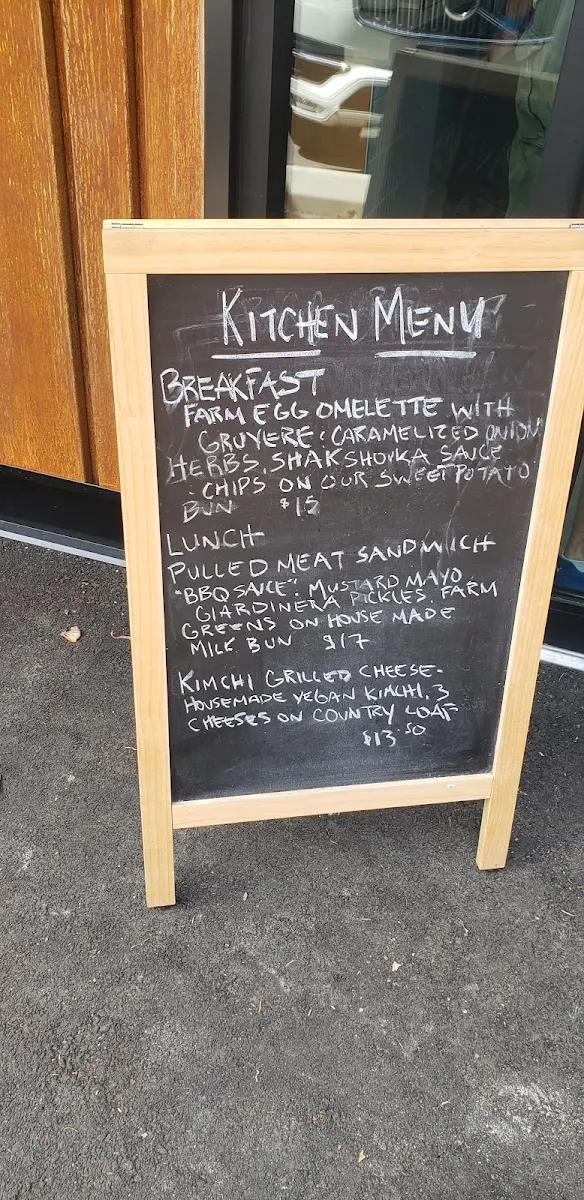 KITCHEN MENU
BREAKFAST
FARM EGG OMELETTE WITH
GRUYERE : CARAMELIZED ONION
HERBS, SHAKSHOUKA SAUCE
. CHIPS ON OUR SWEET POTATO
BUN $15
LUNCH
PULLED MEAT SANDWICH
"BBQ SAUCE". MUSTARD MAYO,
GIARDINERA PICKLES. FARM
GREENS ON HOUSE MADE
MILK BUN $17
KIMCHI GRILLED CHEESE-
HOUSEMADE VEGAN KIMCHI, 3
CHEESES ON COUNTRY LOAF
$13.50